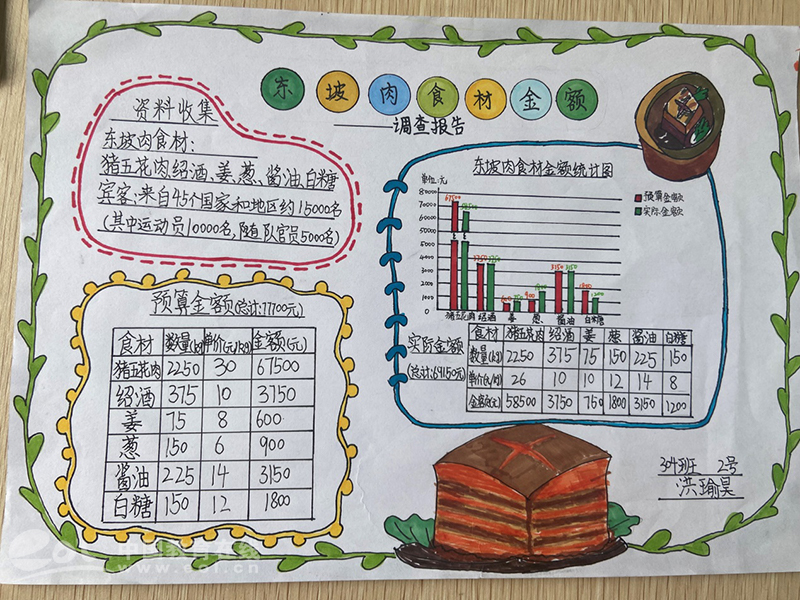 东坡肉食材金额
——调查报告
资料收集
东坡肉食材:
猪五花肉、绍酒、姜、葱、酱油、白糖
宾客:来自45个国家和地区约15000名
(其中运动员10000名,随队官员5000名)
预算金额(总计:77700元)
食材 数量(kg) 单价(元/kg) 金额(元)
猪五花肉 2250 30 67500
绍酒 375 10 3750
姜 75 8 600
葱 150 6 900
酱油 225 14 3150
白糖 150 12 1800
东坡肉食材金额统计图
单位:元
预算金额
实际金额
80000
70000
60000
50000
4000
3000
2000
1000
0
67500 58500 3750 3750 600 750 900 1800 3150 3150 1800 1200
猪五花肉 绍酒 姜 葱 酱油 白糖
实际金额
(总计:69150元)
食材 猪五花肉 绍酒 姜 葱 酱油 白糖
数量(kg) 2250 375 75 150 225 150
单价(元/kg) 26 10 10 12 14 8
金额(元) 58500 3750 750 1800 3150 1200
304班 2号
洪瑜昊
www.eol.cn